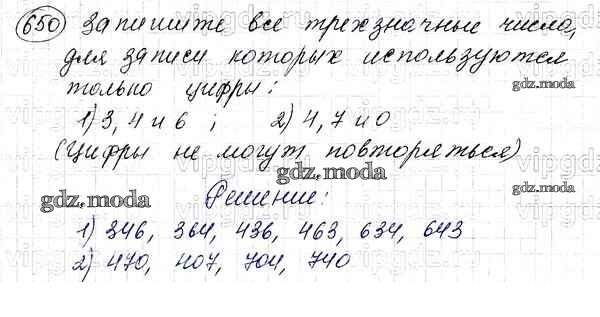 650 Запишите все трехзначные числа,
для записи которых используются
gdz.moda
только цифры:
1) 3, 4 и 6 ; 2) 4, 7 и 0
(Цифры не могут повторяться)
gdz.moda
gdz.moda
gdz.moda
Решение:
1) 346, 364, 436, 463, 634, 643
2) 470, 407, 704, 740